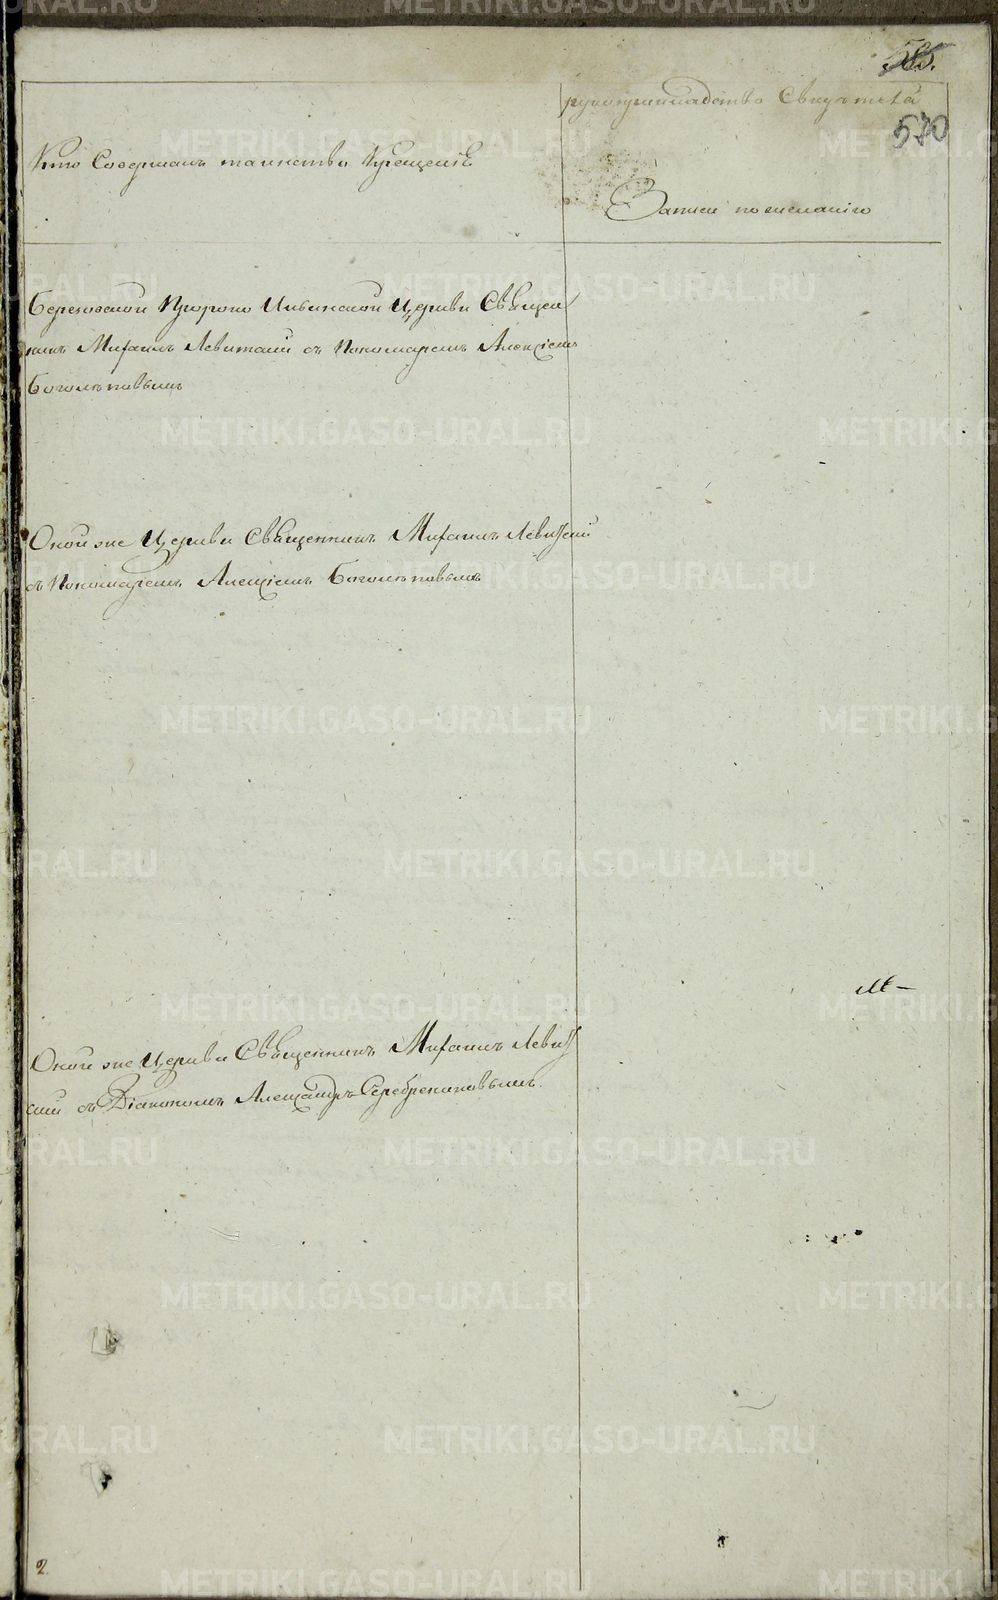 585.
570
Кто Совершалъ таинство Крещенія
рукоприкладство Свидѣтела
Записи по желанію
Березовской Пророко Ильинской Церкви Священ
никъ Михаилъ Левитскій съ Пономаремъ Алексіемъ
Боголѣповымъ
Оной же Церкви Священникъ Михаилъ Левицкій
съ Пономаремъ Алексіемъ Боголѣповымъ
Оной же Церкви Священникъ Михаилъ Левиц
кій съ Діакономъ Александръ Серебрениковымъ.
2
METRIKI.GASO-URAL.RU